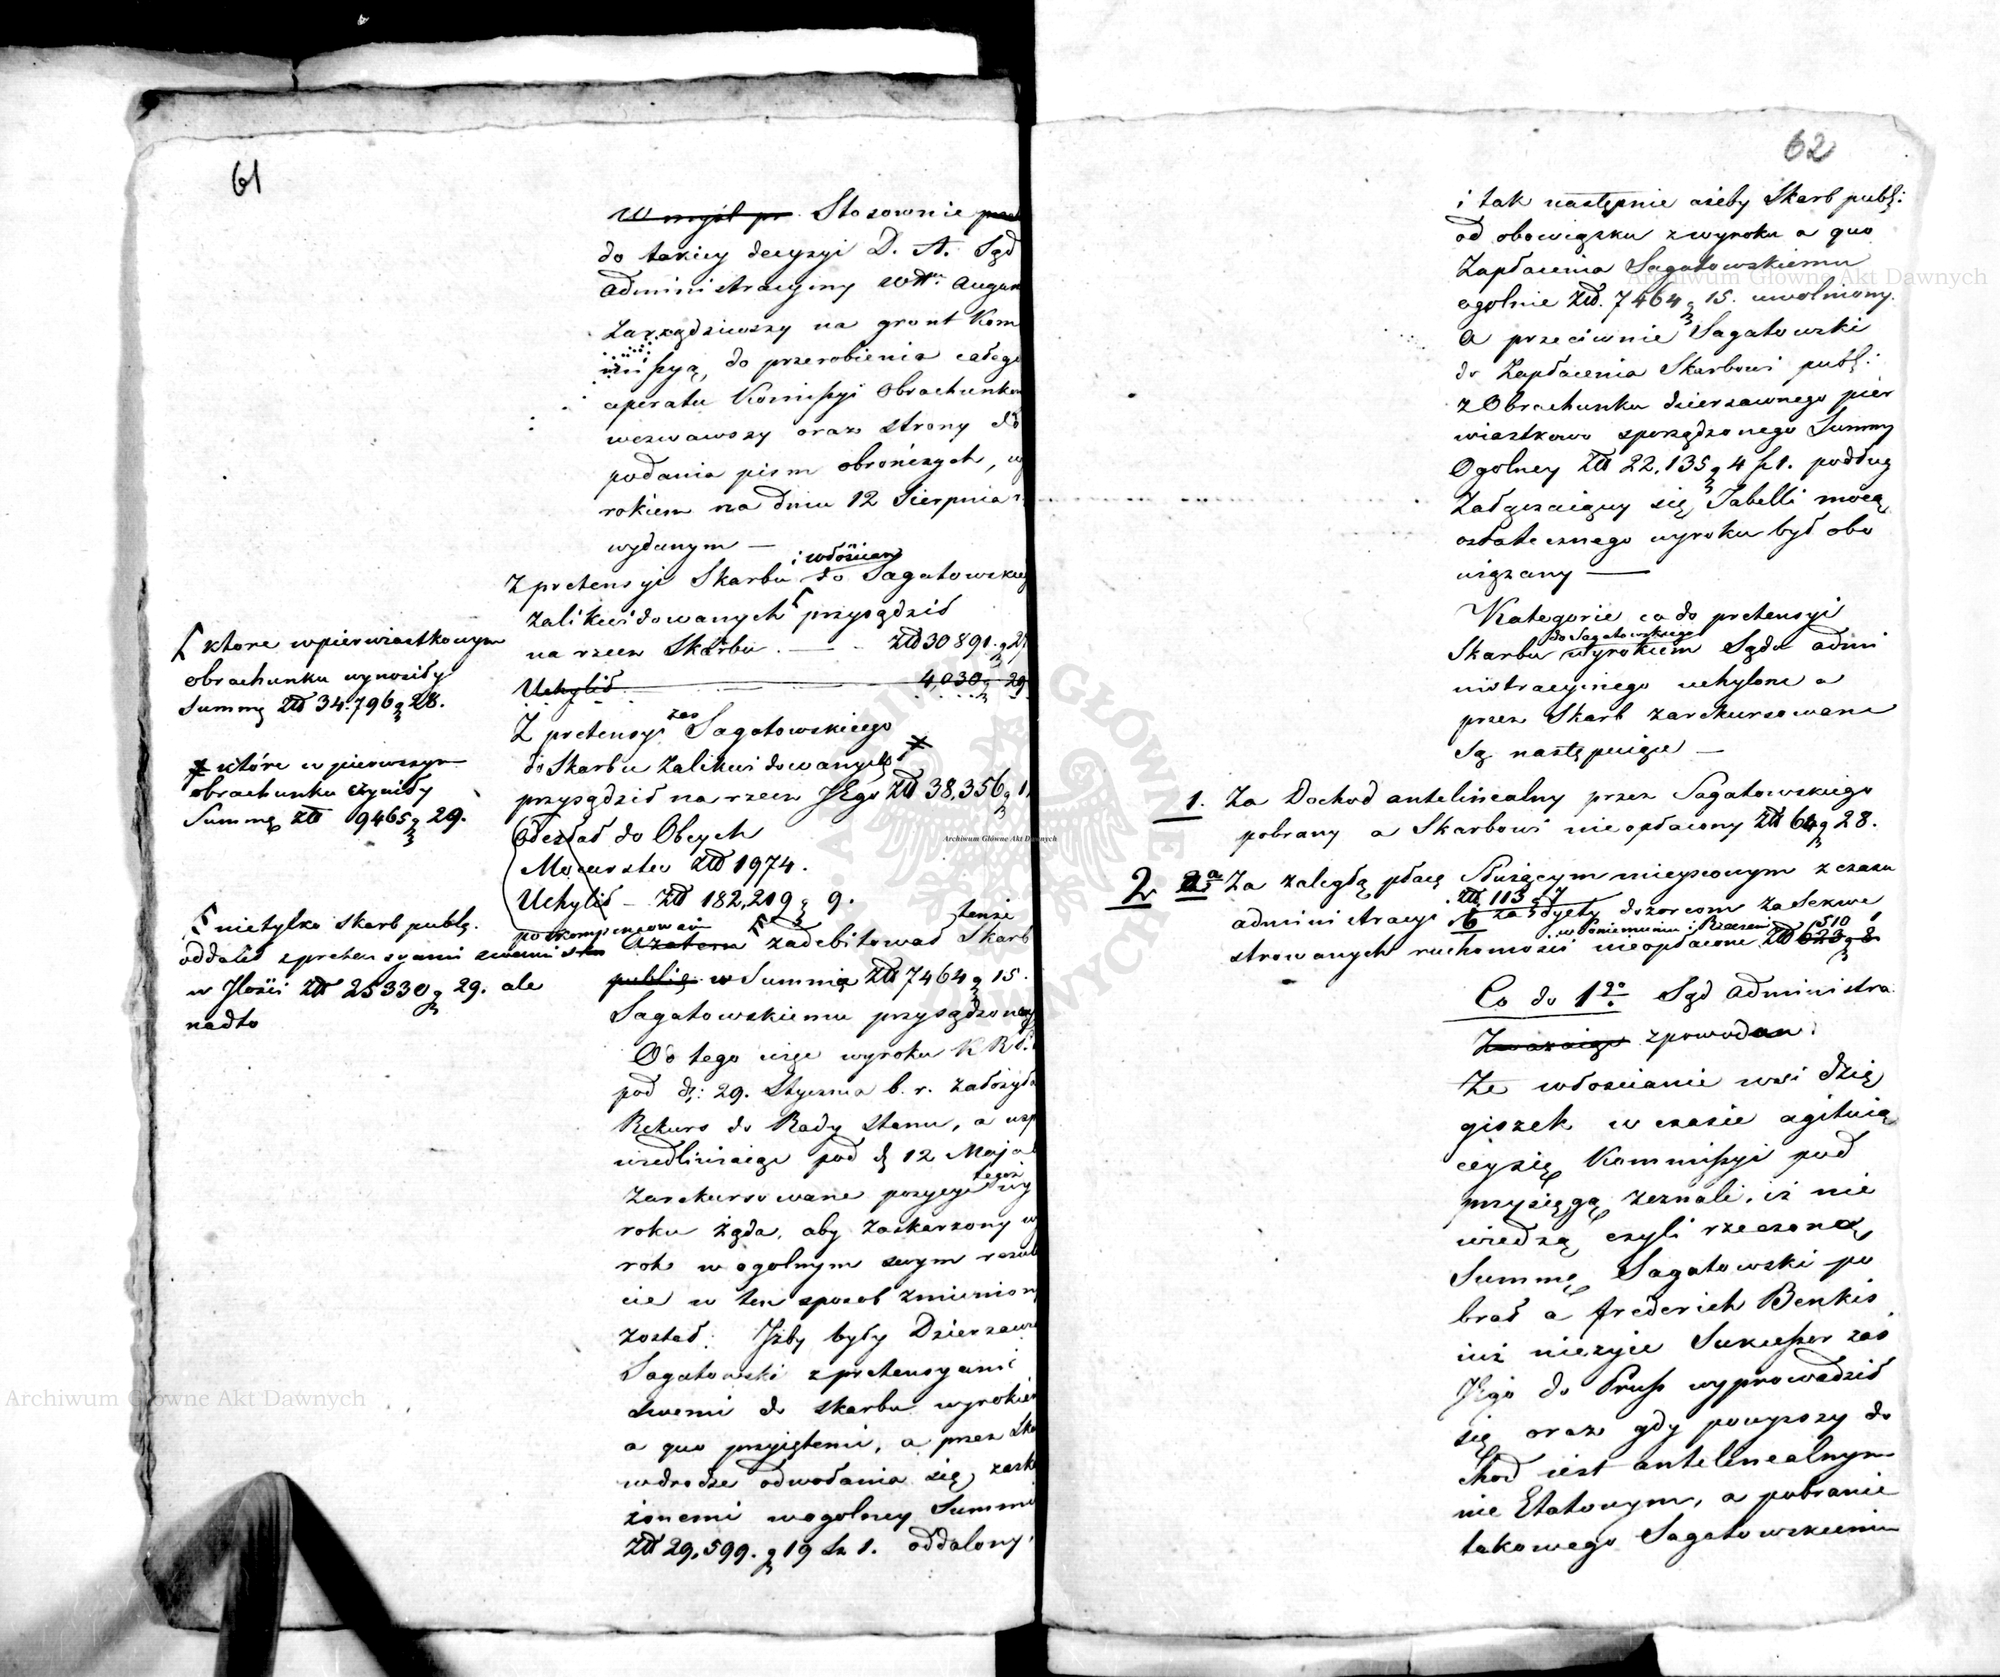 61
Stosownie
do takiey decyzyi D. A. Sąd
Administracyiny Wdztwa Augus
zarządziwszy na grunt Kom
missyą, do przerobienia całego
operatu Kommissyi Obrachunkow
wezwawszy oraz strony do
podania pism obrończych, wy
rokiem na dniu 12 Sierpnia
wydanym —
Z pretensyi Skarbu i włościan do Sagatowskieg
zalikwidowanych przysądził
na rzecz Skarbu . — . złł 30890. g 29
Uchylił 4,030 g 29
Z pretensyi zaś Sagatowskiego
do Skarbu zalikwidowanych
przysądził na rzecz Jego złł 38,356 g 1
Odesłał do Obcych
Mocarstw złł 1974.
Uchylił — złł 182,219 g 9.
poskompensował
A zatem zadebitował tenże Skarb
public w Summie złł 7464 g 15.
Sagatowskiemu przysądzoney
Od tego więc wyroku K R
pod d: 29. Stycznia b. r. założyła
Rekurs do Rady Stanu, a usp
wiedliwiaiąc pod d 12 Maja
zarekursowane pozycye tegoż wy
roku żąda, aby zaskarżony wy
rok w ogolnym swym rezul
cie w ten sposob zmienion
został: Iżby były Dzierżawca
Sagatowski z pretensyami
swemi do skarbu wyrokiem
a quo przyiętemi, a przez Ska
w drodze odwołania się zaska
żonemi w ogolney Summie
złł 29,599. g 19 sz 1. oddalony,
które w pierwiastkowym
obrachunku wynosiły
Summę złł 34.796 g 28.
które w pierwszym
obrachunku czyniły
Summę złł 9465 g 29.
nietylko skarb publ.
oddalił z pretensyami swemi
w Ilości złł 25330 g 29. ale
nadto
62
i tak następnie ażeby Skarb publ:
od obowiązku z wyroku a quo
Zapłacenia Sagatowskiemu
ogolnie złł. 7464 g 15. uwolniony.
A przeciwnie Sagatowski
do Zapłacenia Skarbowi publ:
z Obrachunku dzierżawnego pier
wiastkowo sporządzonego Summy
Ogolney złł 22,135 g 4 sz 1. podług
Załączaiącey się Tabelli mocą
ostatecznego wyroku był obo
wiązany —
Kategorie co do pretensyi
Skarbu do Sagatowskiego wyrokiem Sądu admi
nistracyinego uchylone a
przez Skarb zarekursowane
Są następuiące —
1. Za Dochod antelinealny przez Sagatowskiego
pobrany a Skarbowi nieopłacony złł 64 g 28.
2 Za zaległą płacę Służącym mieyscowym z czasu
administracyi złł 113 g 17
6 za dyety dozorcom zasekwe
strowanych ruchomości w Poniemuniu i Rzeszni nieopłacone złł 623 g 8 510
Co do 1go Sąd Administra
Zważaiąc z powodow.
Że włościanie wsi Dzię
giszek w czasie agituią
cey się Kommissyi pod
przysięgą zeznali, iż nie
wiedzą czyli rzeczoną
Summę Sagatowski po
brał a Frederich Benkis
iuż nieżyie Sukcessor zaś
Jego do Pruss wyprowadził
się oraz gdy powyższy do
chod iest antelinealnym
nie Etatowym, a pobranie
takowego Sagatowskiemu